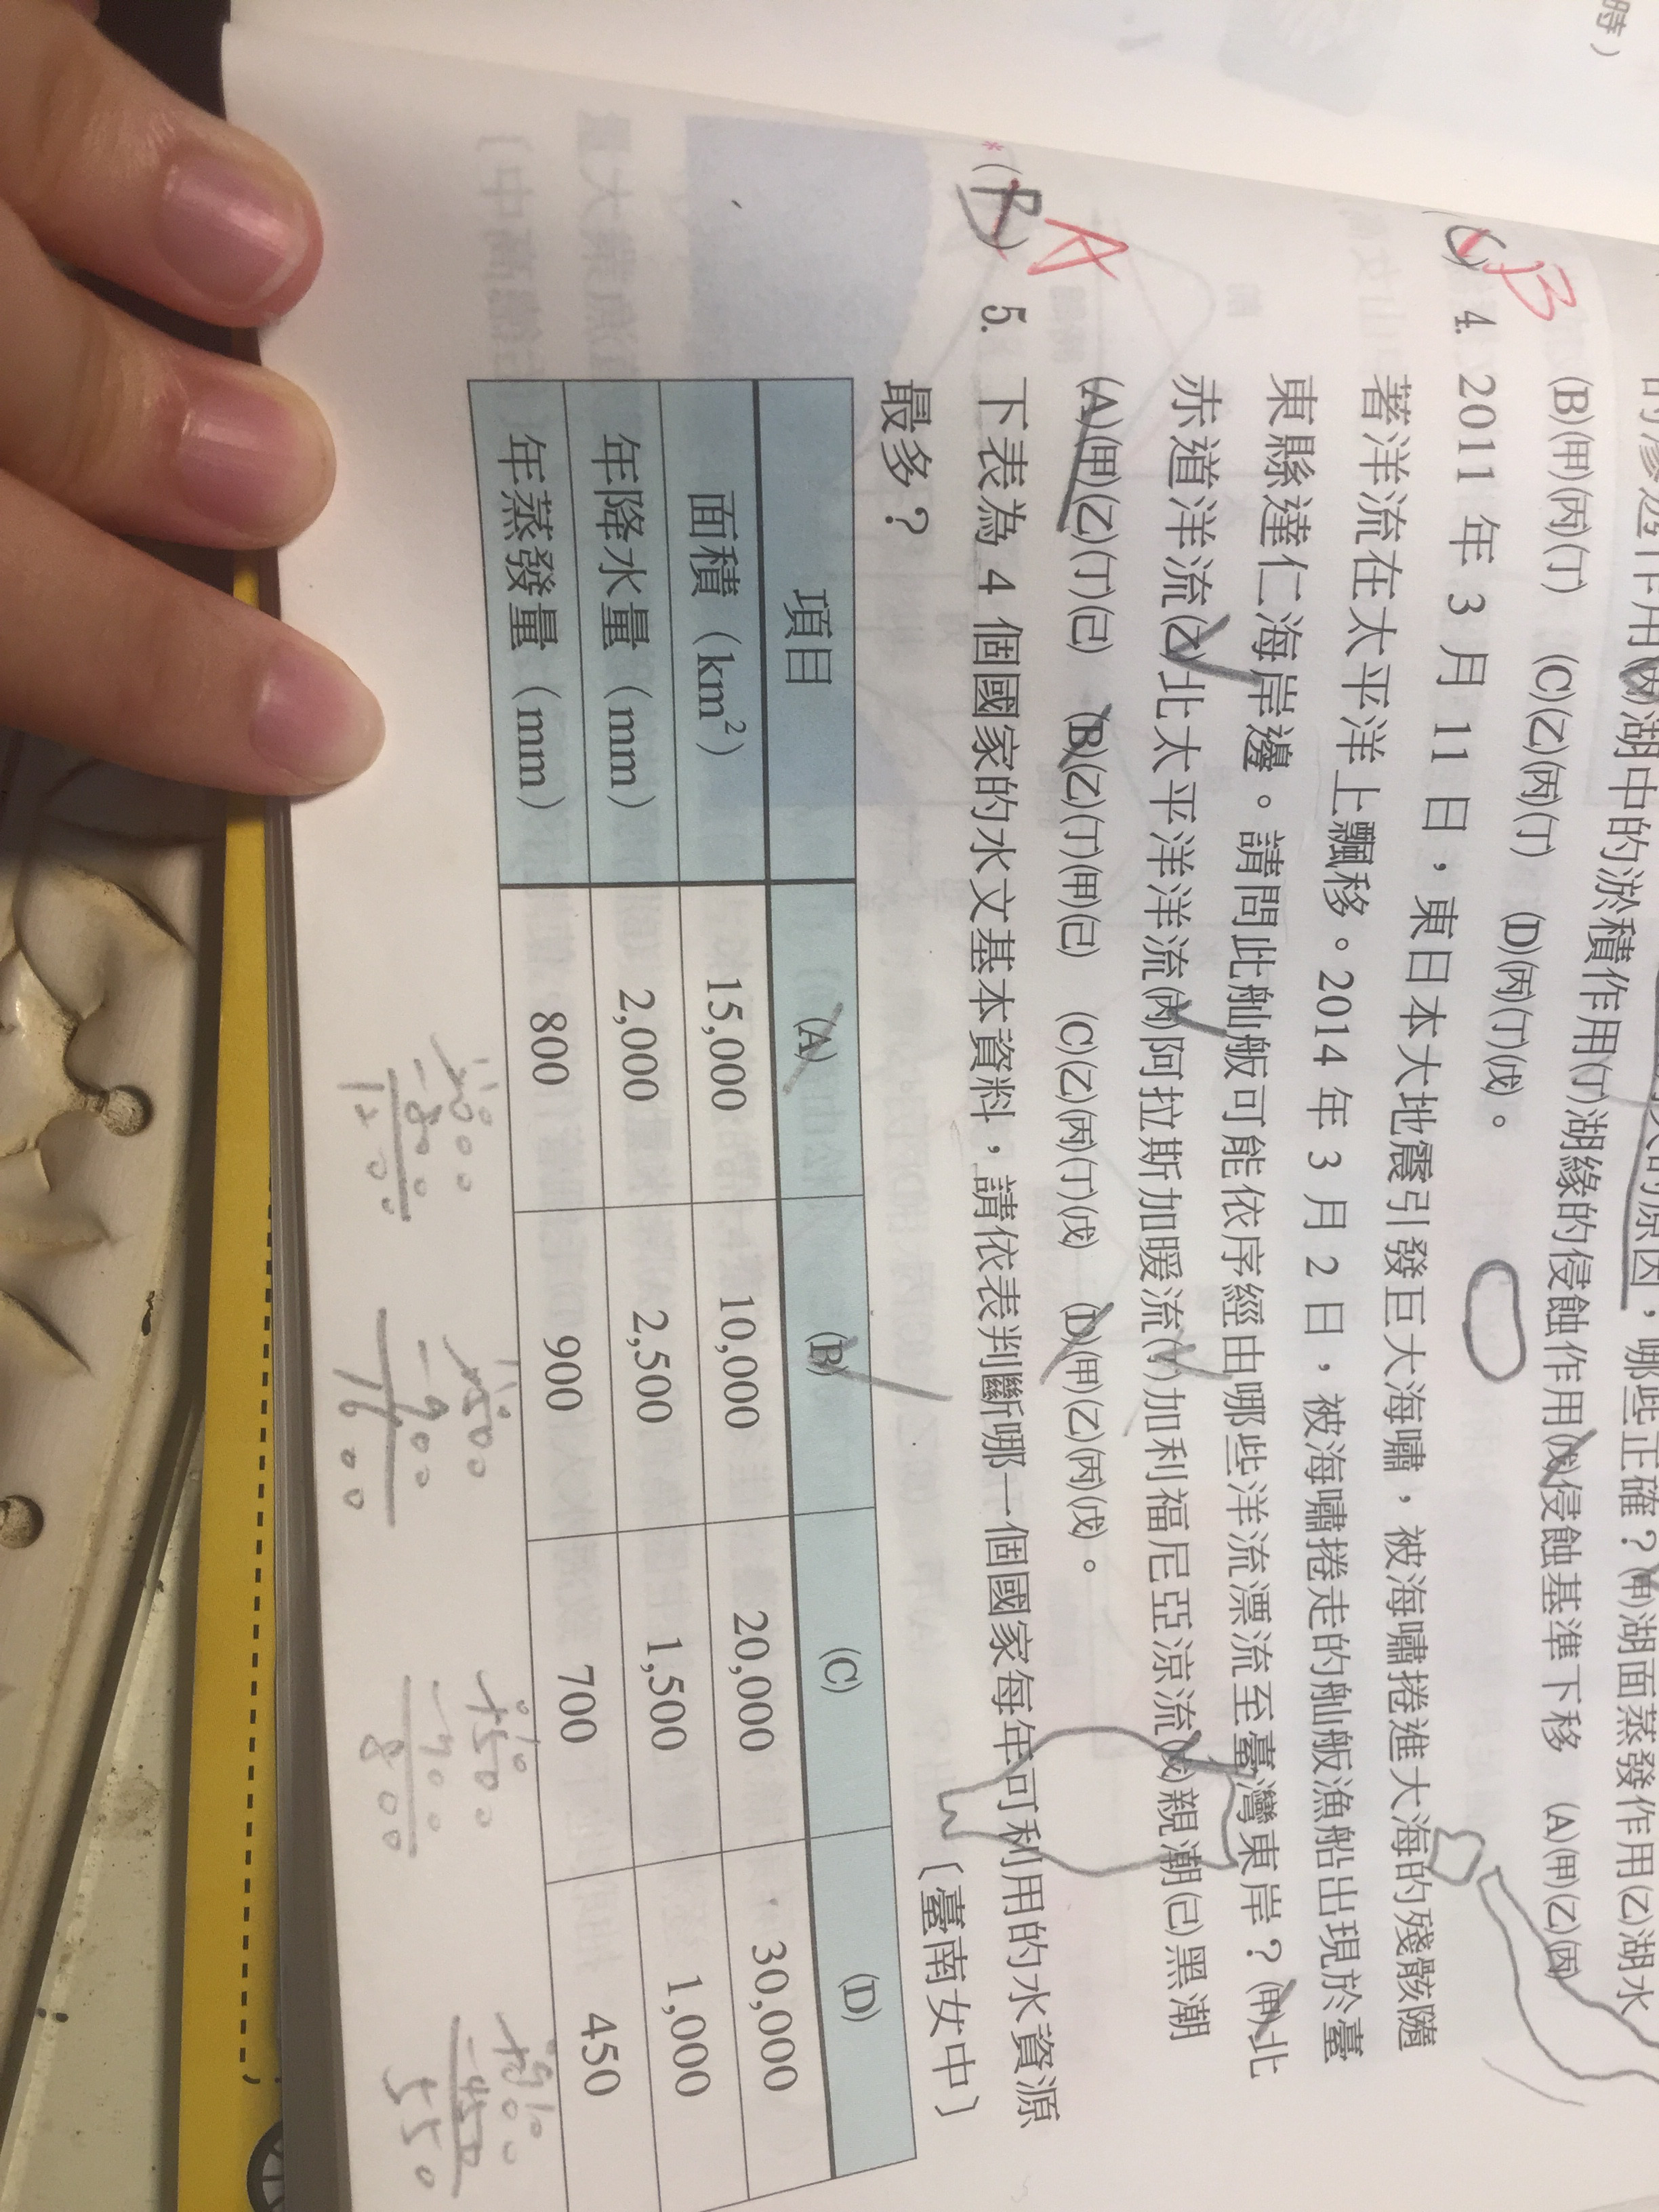 時）
的滲透作用(丙)湖中的淤積作用(丁)湖緣的侵蝕作用(戊)侵蝕基準下移　(A)(甲)(乙)(丙)
(B)(甲)(丙)(丁)　(C)(乙)(丙)(丁)　(D)(丙)(丁)(戊)。
的原因，哪些正確？(甲)湖面蒸發作用(乙)湖水
(C) B 4. 2011 年 3 月 11 日，東日本大地震引發巨大海嘯，被海嘯捲進大海的殘骸隨
著洋流在太平洋上飄移。2014 年 3 月 2 日，被海嘯捲走的舢舨漁船出現於臺
東縣達仁海岸邊。請問此舢舨可能依序經由哪些洋流漂流至臺灣東岸？(甲)北
赤道洋流(乙)北太平洋洋流(丙)阿拉斯加暖流(丁)加利福尼亞涼流(戊)親潮(己)黑潮
(A)(甲)(乙)(丁)(己)　(B)(乙)(丁)(甲)(己)　(C)(乙)(丙)(丁)(戊)　(D)(甲)(乙)(丙)(戊)。
*(B) A 5. 下表為 4 個國家的水文基本資料，請依表判斷哪一個國家每年可利用的水資源
最多？　〔臺南女中〕
項目　(A)　(B)　(C)　(D)
面積（km²）　15,000　10,000　20,000　30,000
年降水量（mm）　2,000　2,500　1,500　1,000
年蒸發量（mm）　800　900　700　450
2000　2500　1500　1000
-800　-900　-700　-450
1200　1600　800　550